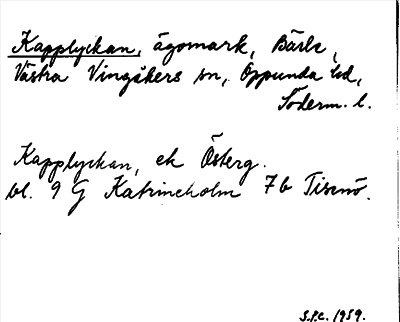 Kapplyckan, ägomark, Bärle,
Västra Vingåkers sn, Oppunda hd,
Söderm. l.
Kapplyckan, ek Österg.
bl. 9 G Katrineholm 7b Tisenö.
S.P.C. 1959.